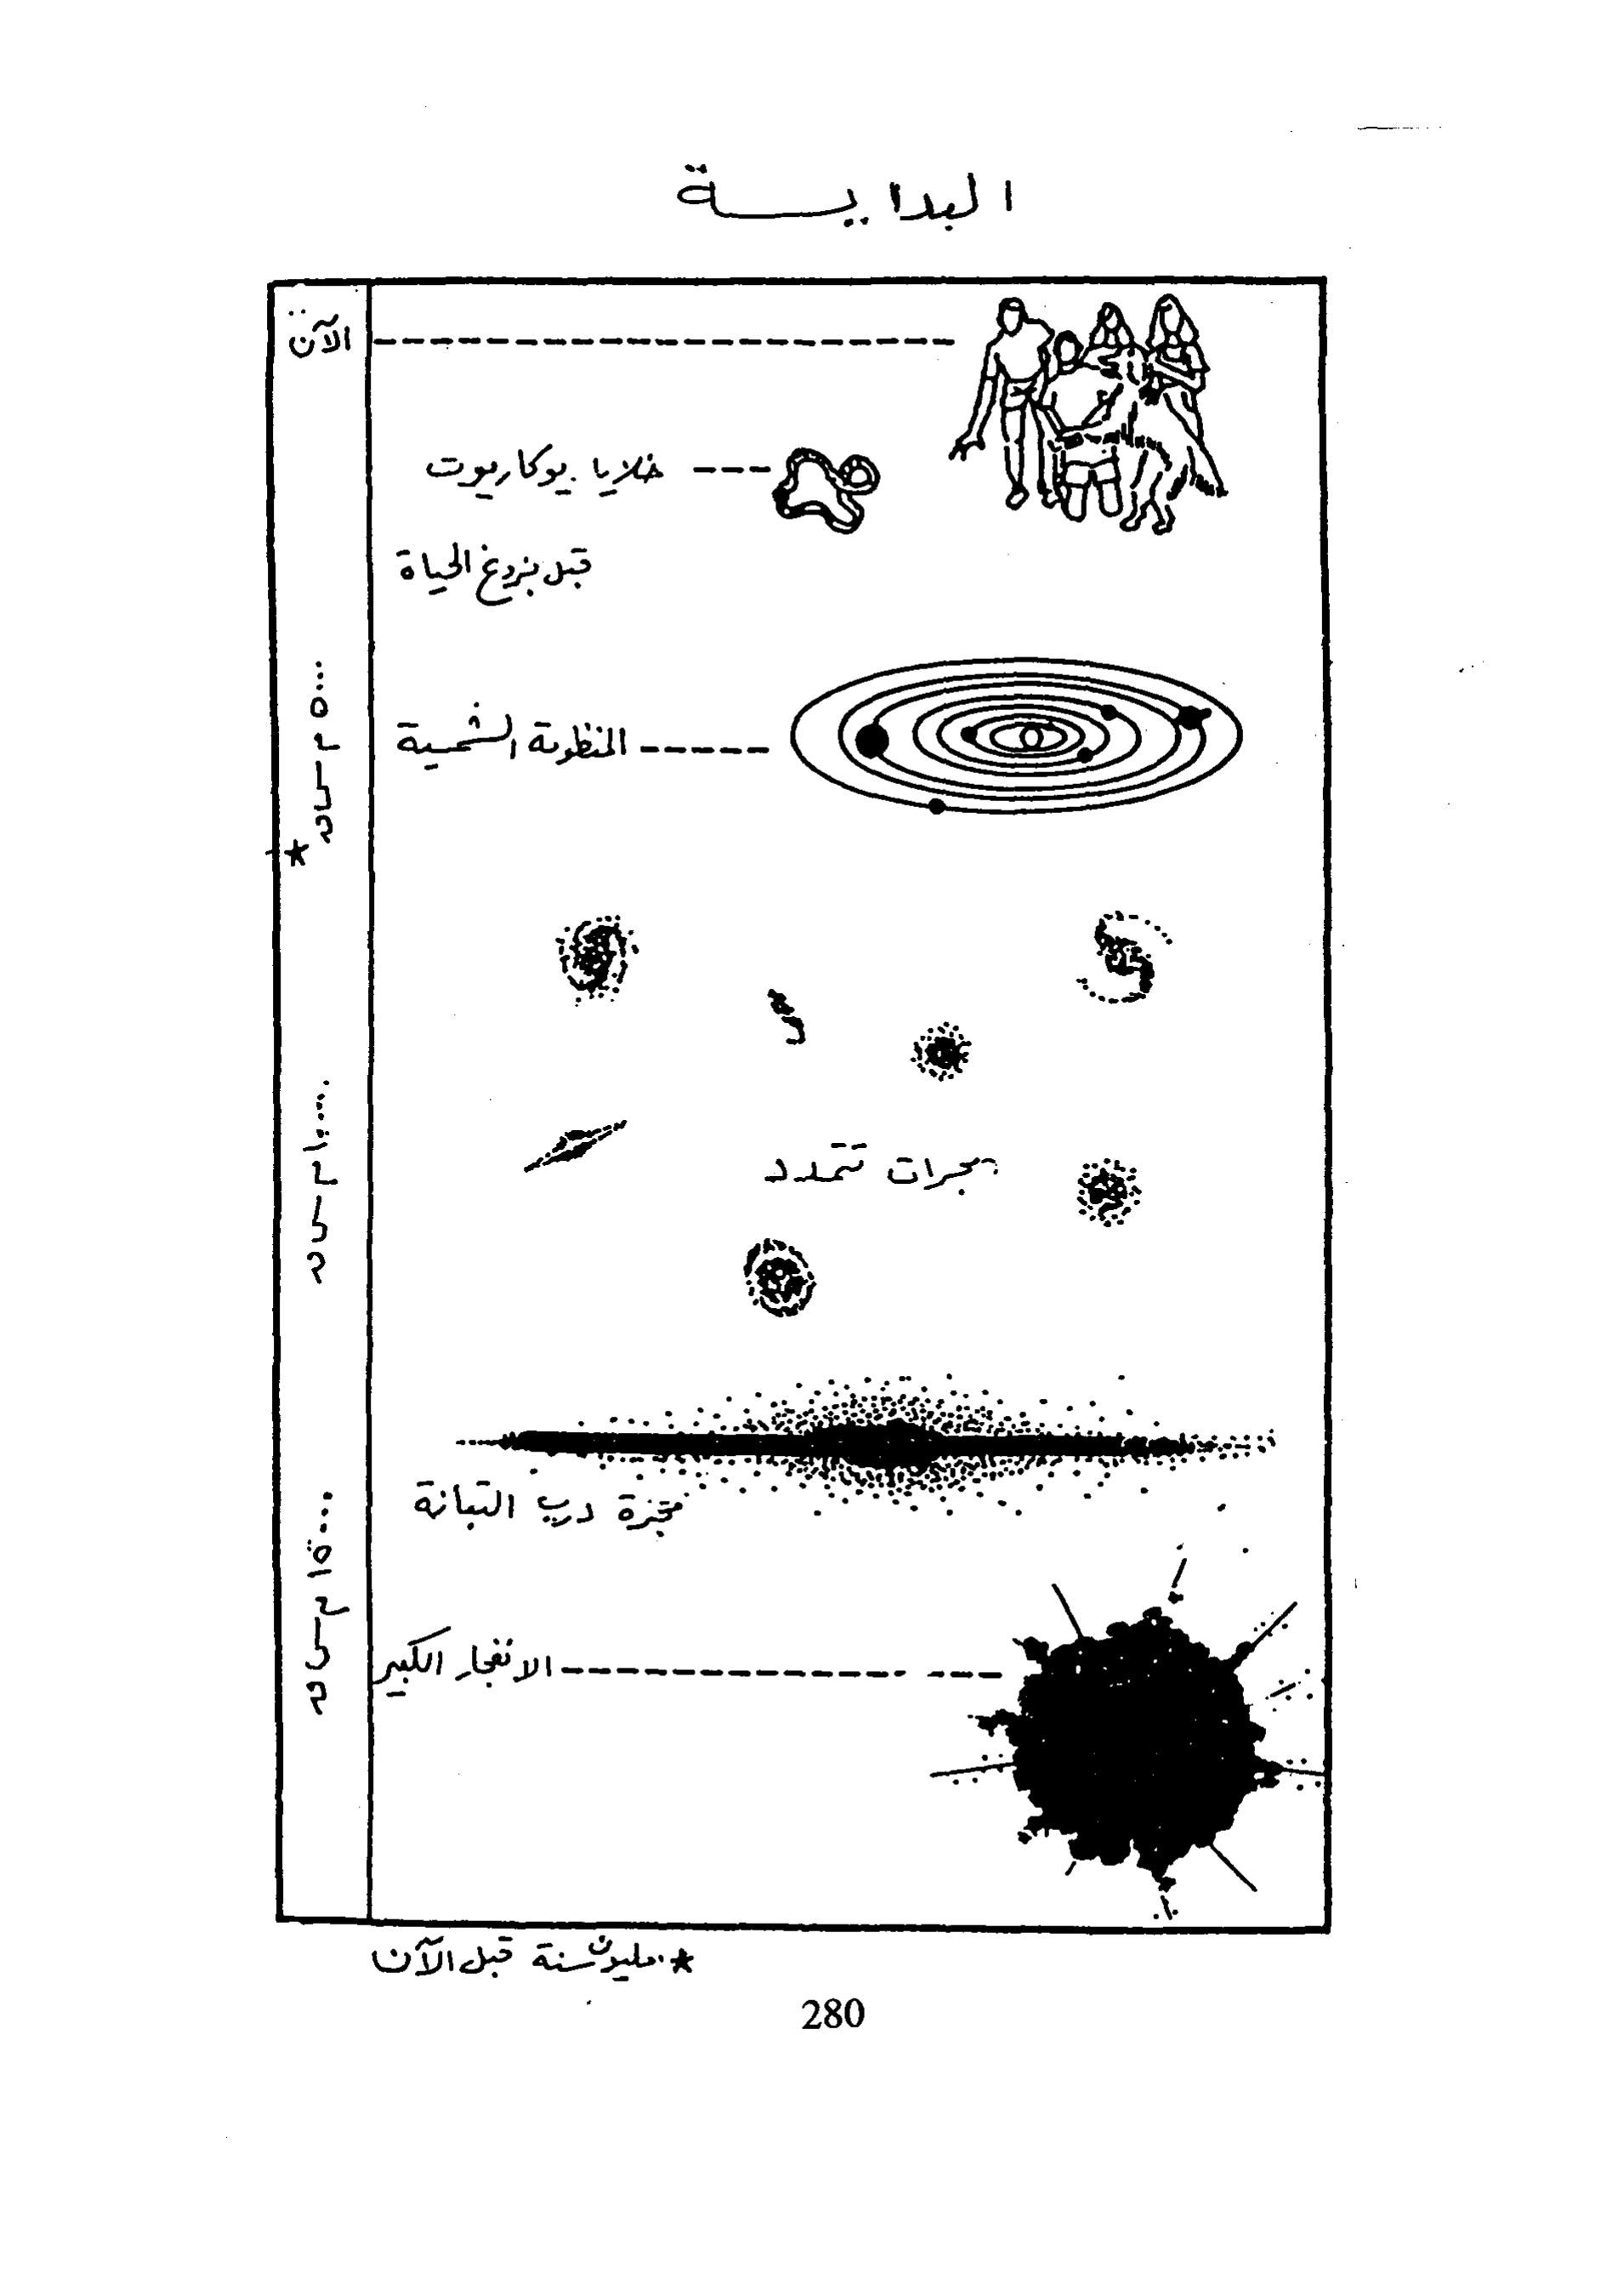 البدايـــة
الآن
خلايا يوكاريوت
قبل بزوغ الحياة
٥٠٠٠ م س ق ★
المنظومة الشمسية
١٠٠٠٠ م س ق
مجرات تتمدد
مجرة درب التبانة
١٥٠٠٠ م س ق
الانفجار الكبير
★ مليون سنة قبل الآن
280